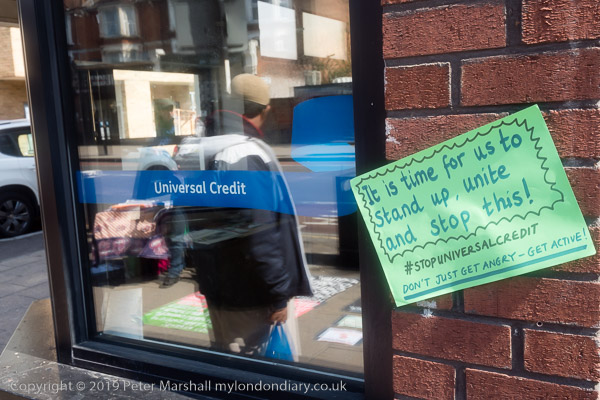 Universal Credit
It is time for us to
stand up, unite
and stop this!
#STOPUNIVERSALCREDIT
DON'T JUST GET ANGRY – GET ACTIVE!
Copyright © 2019 Peter Marshall mylondondiary.co.uk